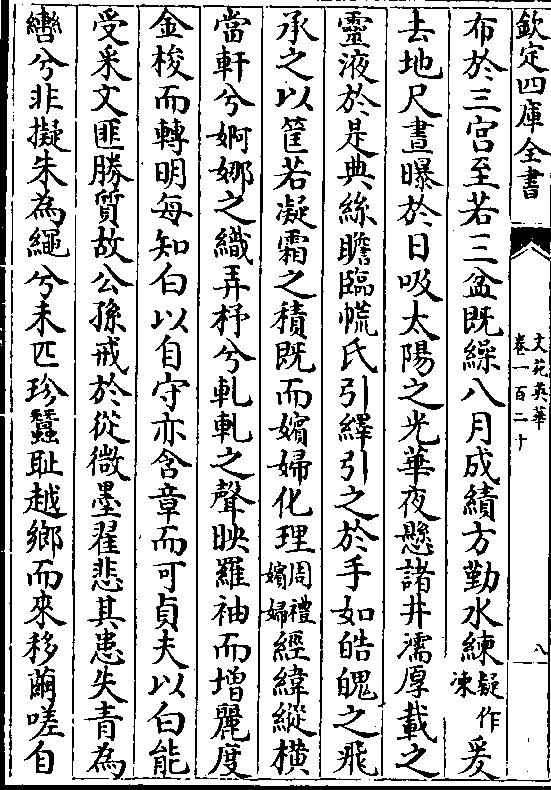 欽定四庫全書
文苑英華
卷一百二十
八
布於三宮至若三盆既繅八月成績方勤水練疑作湅爰
去地尺晝曝於日吸太陽之光華夜懸諸井濡厚載之
靈液於是典絲瞻臨㡆氏引繹引之於手如皓魄之飛
承之以筐若凝霜之積既而嬪婦化理周禮嬪婦經緯縱横
當軒兮婀娜之織弄杼兮軋軋之聲映羅袖而增麗度
金梭而轉明每知白以自守亦含章而可貞夫以白能
受采文匪勝質故公孫戒於從微墨翟悲其患失青為
轡兮非擬朱為繩兮未匹珍蠶耻越鄉而來移繭嗟自